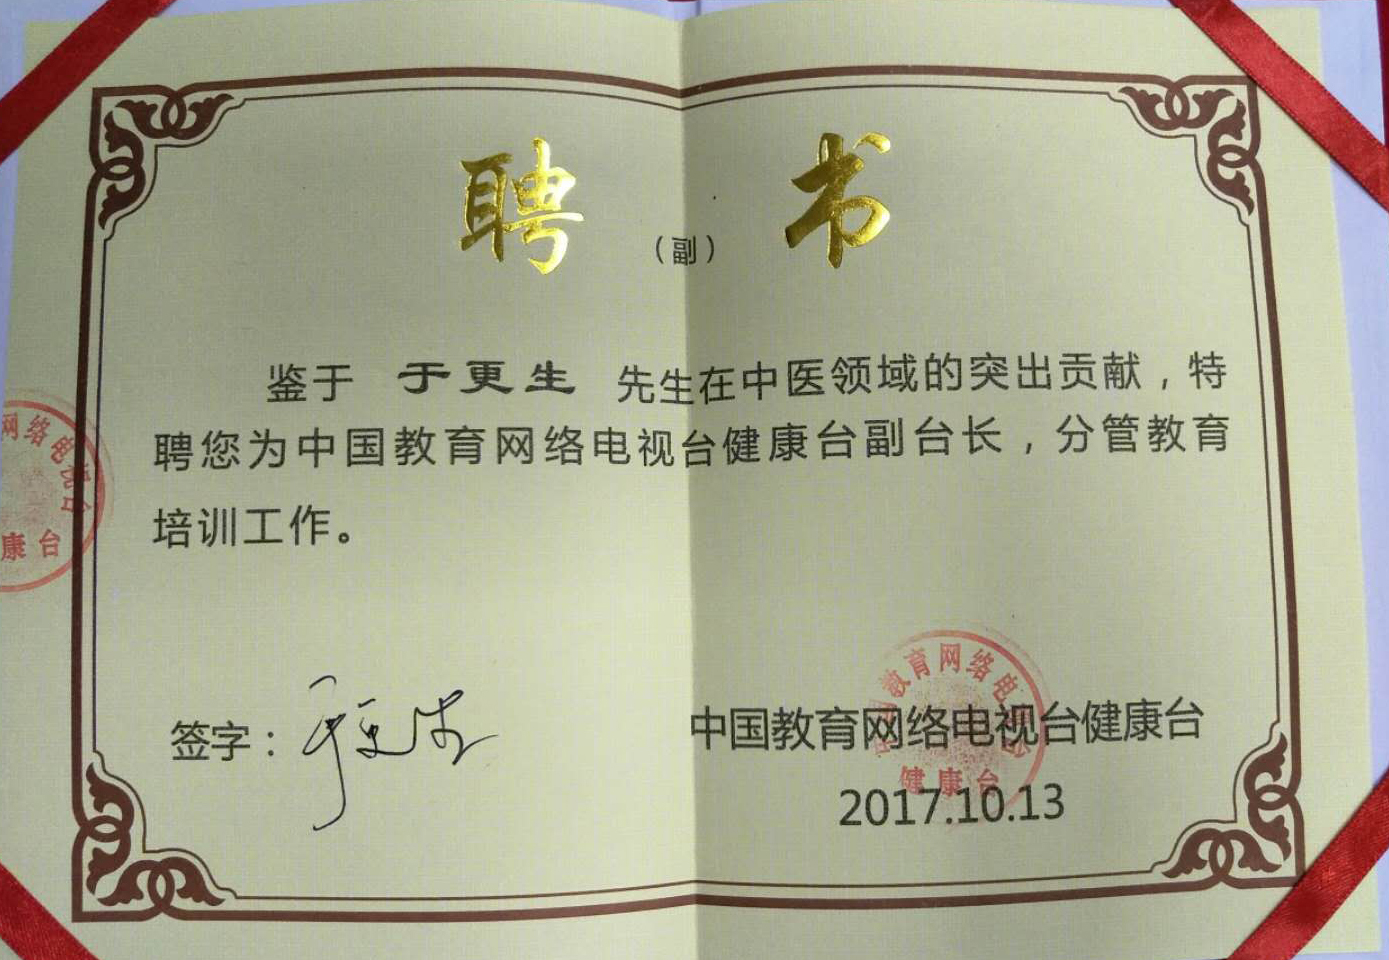 聘 书
（副）
鉴于 于更生 先生在中医领域的突出贡献，特
聘您为中国教育网络电视台健康台副台长，分管教育
培训工作。
网络电视台
康台
签字：于更生
中国教育网络电视台健康台
2017.10.13
教育网络电
台
健康台